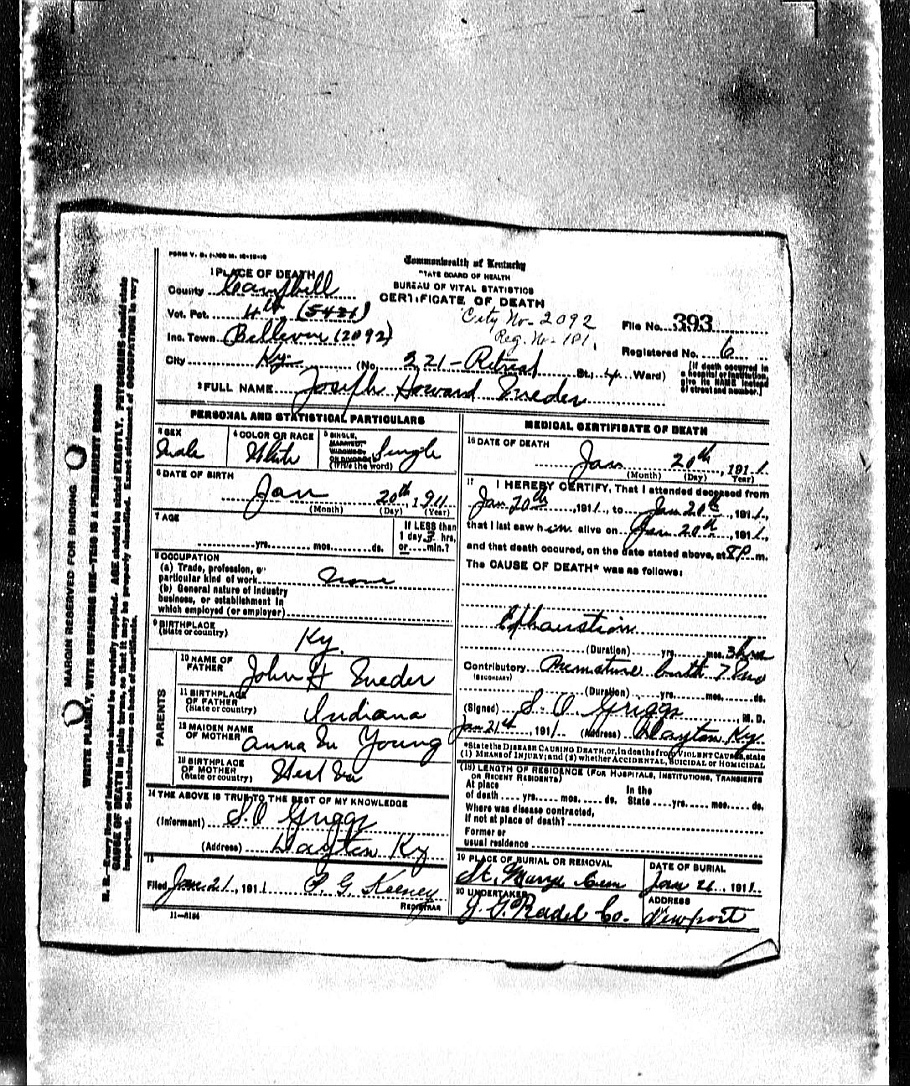 FORM V. S.
Commonwealth of Kentucky
STATE BOARD OF HEALTH
BUREAU OF VITAL STATISTICS
CERTIFICATE OF DEATH
1 PLACE OF DEATH
County Campbell
Vot. Pct. 4th (5421)
Inc. Town Bellevue (2092)
City Ky. (No. 221- St., Ward)
City No- 2092
Reg. No- 181.
File No. 393
Registered No. 6
[If death occurred in a hospital or institution, give its NAME instead of street and number.]
2 FULL NAME Joseph Howard
PERSONAL AND STATISTICAL PARTICULARS
3 SEX Male
4 COLOR OR RACE White
5 SINGLE, MARRIED, WIDOWED OR DIVORCED (Write the word) Single
6 DATE OF BIRTH
Jan 20th, 1911
(Month) (Day) (Year)
7 AGE
yrs. mos. ds.
If LESS than 1 day, 3 hrs. or min.?
8 OCCUPATION
(a) Trade, profession, or particular kind of work None
(b) General nature of industry business, or establishment in which employed (or employer)
9 BIRTHPLACE (State or country) Ky.
PARENTS
10 NAME OF FATHER John H
11 BIRTHPLACE OF FATHER (State or country) Indiana
12 MAIDEN NAME OF MOTHER Anna M Young
13 BIRTHPLACE OF MOTHER (State or country) West Va
14 THE ABOVE IS TRUE TO THE BEST OF MY KNOWLEDGE
(Informant) S. O Griggs
(Address) Dayton Ky
15
Filed Jan. 21, 1911 P. G. Keeney
REGISTRAR
11—
MEDICAL CERTIFICATE OF DEATH
16 DATE OF DEATH
Jan 20th, 1911
(Month) (Day) (Year)
17 I HEREBY CERTIFY, That I attended deceased from
Jan 20th, 1911, to Jan 20th, 1911,
that I last saw him alive on Jan 20th, 1911,
and that death occured, on the date stated above, at 8P m.
The CAUSE OF DEATH* was as follows:
Exhaustion
(Duration) yrs. mos. 3 hrs
Contributory (SECONDARY) Premature birth 7 mo
(Duration) yrs. mos. ds.
(Signed) S. O Griggs, M. D.
Jan 21st, 1911 (Address) Dayton Ky.
*State the DISEASE CAUSING DEATH, or, in deaths from VIOLENT CAUSES, state
(1) MEANS OF INJURY; and (2) whether ACCIDENTAL, SUICIDAL or HOMICIDAL
(18) LENGTH OF RESIDENCE (FOR HOSPITALS, INSTITUTIONS, TRANSIENTS OR RECENT RESIDENTS)
At place of death yrs. mos. ds. In the State yrs. mos. ds.
Where was disease contracted,
If not at place of death?
Former or
usual residence
19 PLACE OF BURIAL OR REMOVAL
St. Marys Cem
DATE OF BURIAL
Jan 1911.
20 UNDERTAKER
Radel Co.
ADDRESS
Newport
MARGIN RESERVED FOR BINDING
WRITE PLAINLY, WITH UNFADING INK—THIS IS A PERMANENT RECORD
N. B.—Every item of information should be carefully supplied. AGE should be stated EXACTLY. PHYSICIANS should state
CAUSE OF DEATH in plain terms, so that it may be properly classified. Exact statement of OCCUPATION is very
important. See instructions on back of certificate.